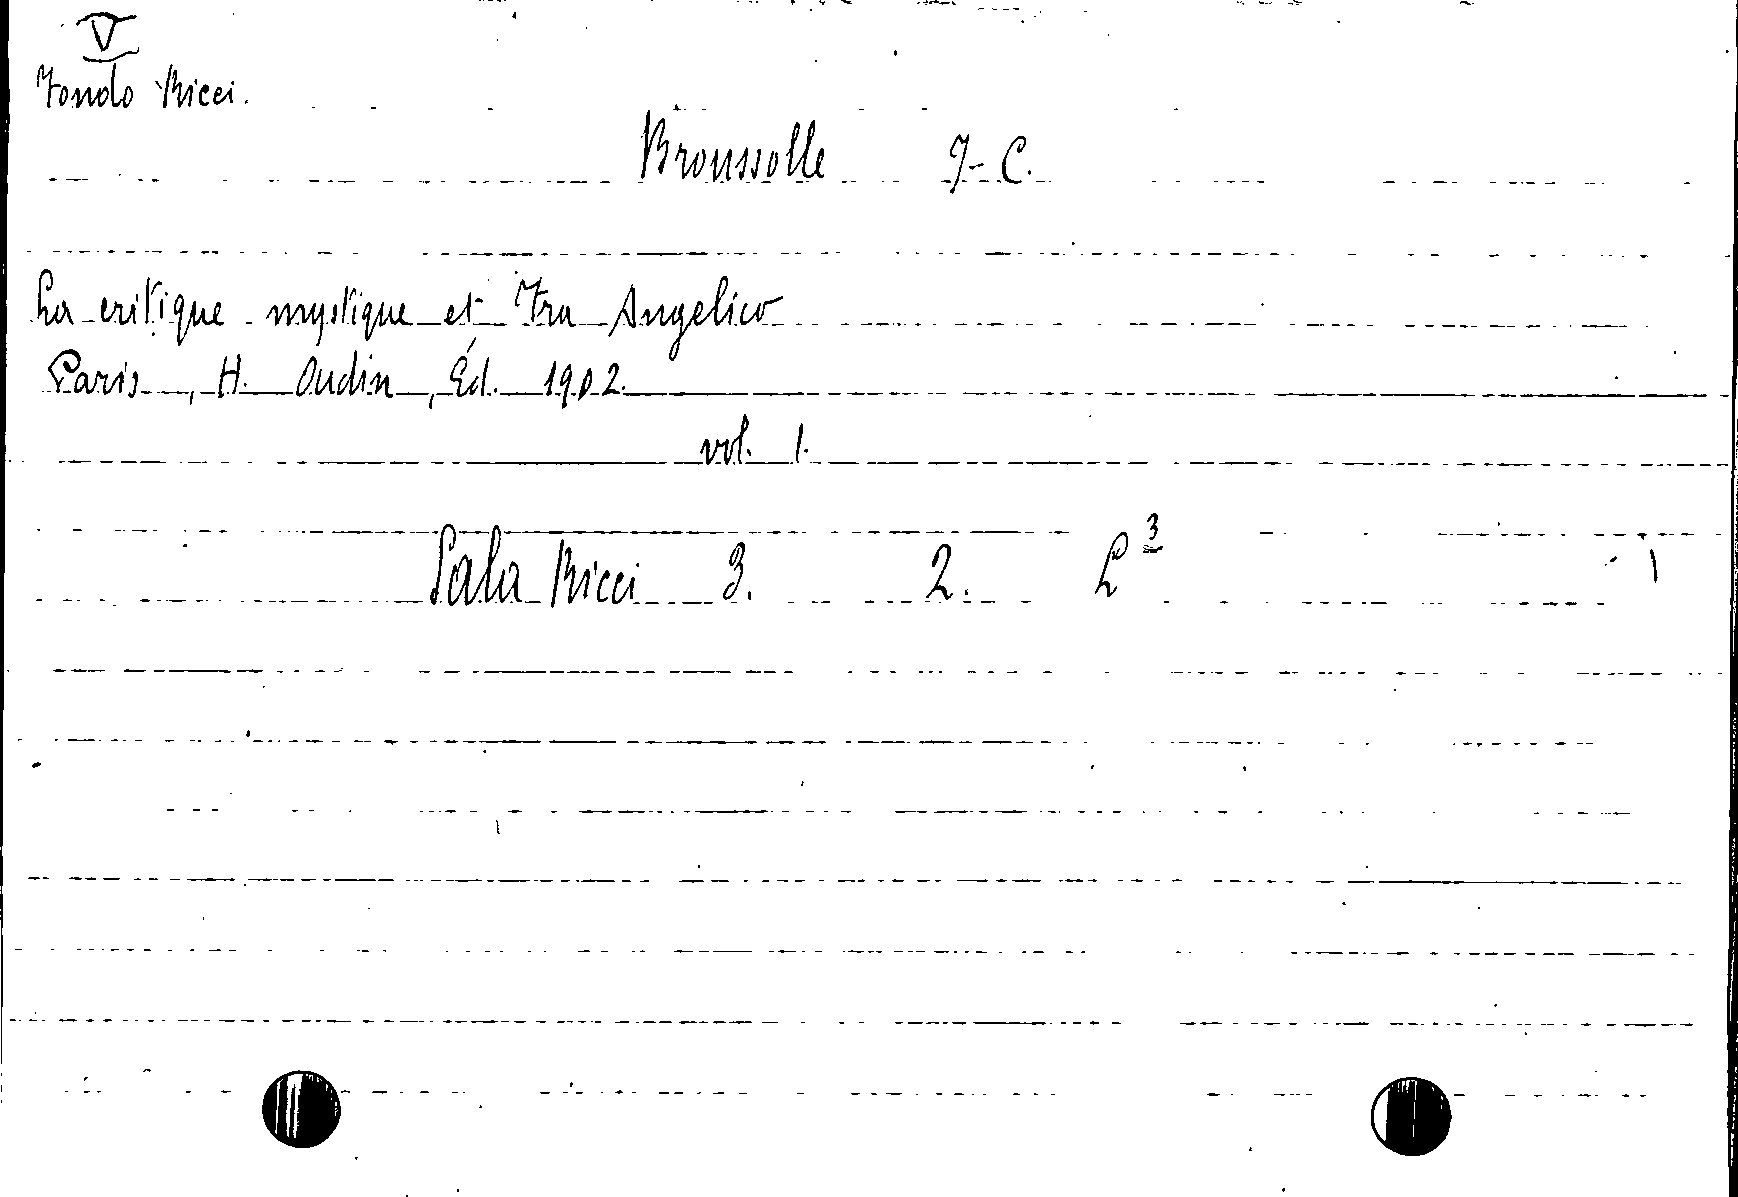 V
Fondo Ricci.
Broussolle J-C.
La critique mystique et Fra Angelico
Paris, H. Oudin, Éd. 1902.
vol. 1.
Sala Ricci 3. 2. L³